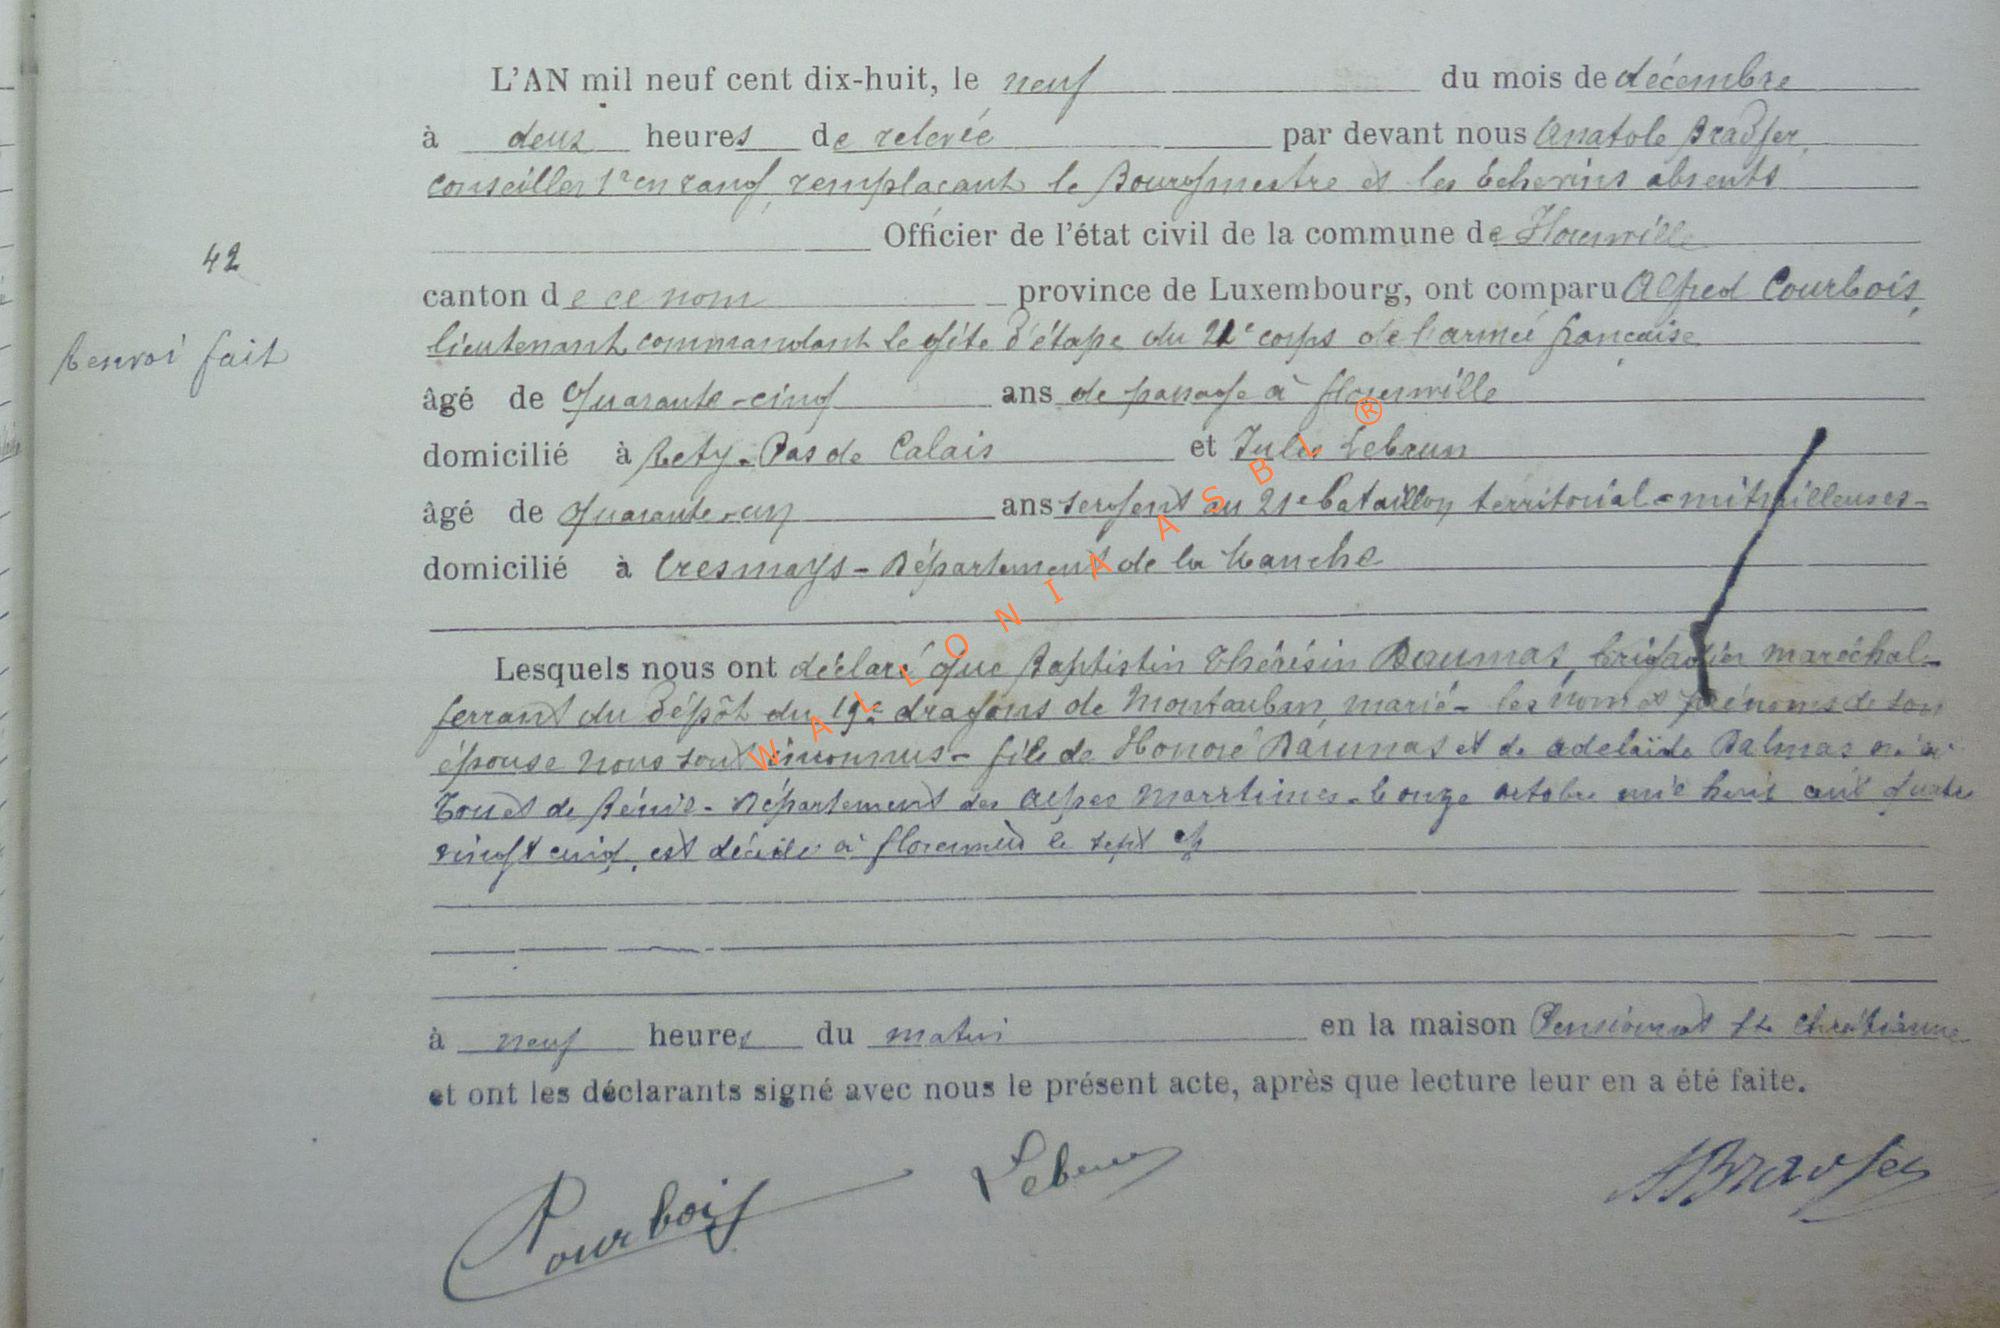 L'AN mil neuf cent dix-huit, le neuf du mois de décembre
à deux heures de relevée par devant nous Anatole Bradfer,
conseiller 1r en rang, remplaçant le Bourgmestre et les Echevins absents
Officier de l'état civil de la commune de Florenville
42
canton de ce nom province de Luxembourg, ont comparu Alfred Courbois,
lieutenant commandant le gîte d'étape du 21e corps de l'armée française
Renvoi fait
âgé de quarante-cinq ans de passage à Florenville
domicilié à Réty - Pas de Calais et Jules Lebrun
âgé de quarante-un ans sergent au 21e bataillon territorial - mitrailleuses -
domicilié à - Département de la Manche
Lesquels nous ont déclaré que Baptistin Thérésin Daumas, brigadier maréchal-
ferrant du dépôt du 19e dragons de Montauban, marié - les nom et prénoms de son
épouse nous sont inconnus - fils de Honoré Daumas et de Adelaïde Balmas né à
Touët de - Département des Alpes Maritimes - le onze octobre mil huit cent quatre
vingt cinq, est décédé à Florenville le sept ct
à neuf heures du matin en la maison Pensionnat Ste Chrétienne
et ont les déclarants signé avec nous le présent acte, après que lecture leur en a été faite.
Courbois Lebrun ABradfer
WALLONIA ASBL ®